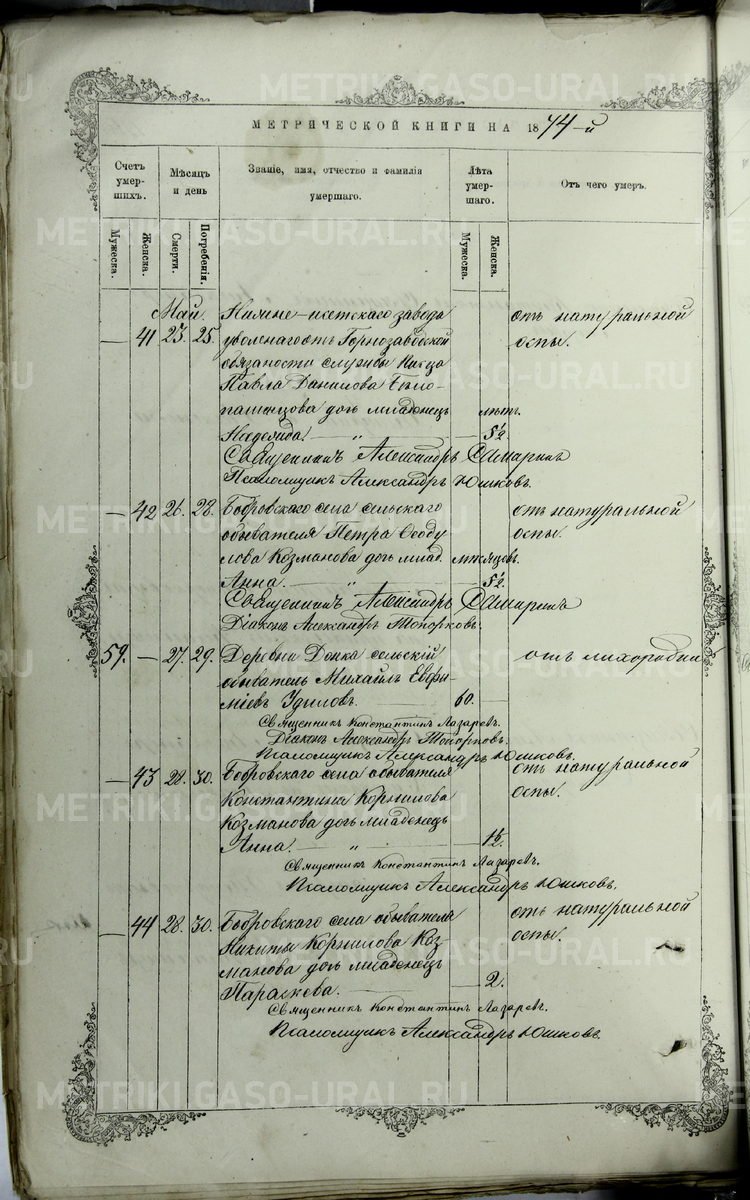 МЕТРИЧЕСКОЙ КНИГИ НА 1874-й
Счетъ умер- шихъ.
Мѣсяцъ и день
Званіе, имя, отчество и фамилія умершаго.
Лѣта умер- шаго.
Отъ чего умеръ.
Мужеска. Женска. Смерти. Погребенія. Мужеска. Женска.
Май. Нижне-исетскаго завода отъ натуральной
— 41 23. 25. уволенаго отъ Горнозаводской оспы.
обязаности службы
Павла Данилова Бѣло-
пашенцова дочь младенецъ лѣтъ.
— " — 5½
Священникъ Александръ Симаринъ
Псаломщикъ Александръ Юшковъ.
— 42 26. 28. Бобровскаго села сельскаго отъ натуральной
обывателя Петра Ѳеоду оспы.
лова Козманова дочь млад. мѣсяцевъ.
Анна. — " — 5½
Священникъ Александръ Симаринъ
Діаконъ Александръ Топорковъ.
59. — 27. 29. Деревни сельскій отъ лихорадки
обыватель Михаилъ Евфи-
міевъ Удиловъ. — 60.
Священникъ Константинъ Лазаревъ.
Діаконъ Александръ Топорковъ.
Псаломщикъ Александръ Юшковъ.
— 43 28. 30. Бобровскаго села обывателя отъ натуральной
Константина Корнилова оспы.
Козманова дочь младенецъ
Анна. — " — 1½.
Священникъ Константинъ Лазаревъ.
Псаломщикъ Александръ Юшковъ.
— 44 28. 30. Бобровскаго села обывателя отъ натуральной
Никиты Корнилова Коз- оспы.
манова дочь младенецъ
Параскева. — 2.
Священникъ Константинъ Лазаревъ.
Псаломщикъ Александръ Юшковъ.
METRIKI.GASO-URAL.RU